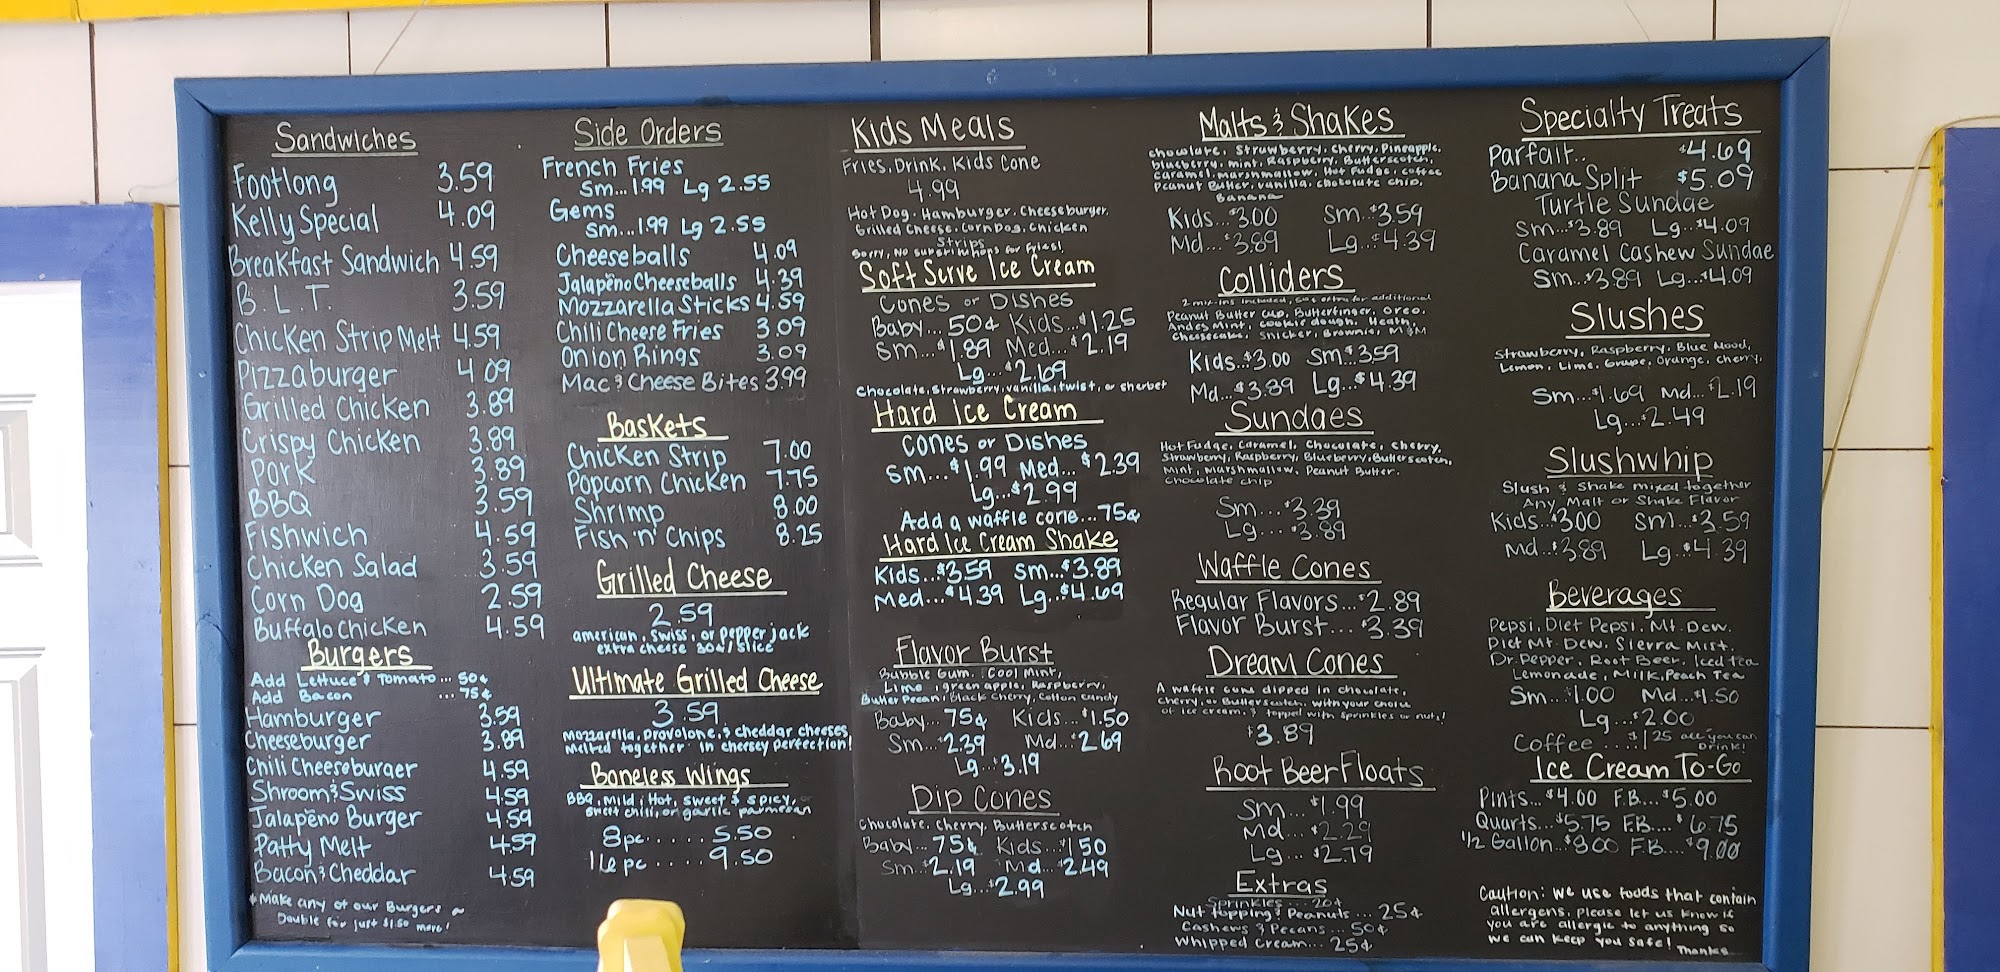 Sandwiches
Footlong 3.59
Kelly Special 4.09
Breakfast Sandwich 4.59
B.L.T. 3.59
Chicken Strip Melt 4.59
Pizzaburger 4.09
Grilled Chicken 3.89
Crispy Chicken 3.89
Pork 3.89
BBQ 3.59
Fishwich 4.59
Chicken Salad 3.59
Corn Dog 2.59
Buffalo Chicken 4.59
Burgers
Add Lettuce & Tomato... 50¢
Add Bacon ... 75¢
Hamburger 3.59
Cheeseburger 3.89
Chili Cheeseburger 4.59
Shroom & Swiss 4.59
Jalapeño Burger 4.59
Patty Melt 4.59
Bacon & Cheddar 4.59
* Make any of our Burgers a
Double for just $1.50 more!
Side Orders
French Fries
Sm... 1.99 Lg 2.55
Gems
Sm... 1.99 Lg 2.55
Cheeseballs 4.09
Jalapeño Cheeseballs 4.39
Mozzarella Sticks 4.59
Chili Cheese Fries 3.09
Onion Rings 3.09
Mac & Cheese Bites 3.99
Baskets
Chicken Strip 7.00
Popcorn Chicken 7.75
Shrimp 8.00
Fish 'n' Chips 8.25
Grilled Cheese
2.59
american, swiss, or pepper jack
extra cheese 30¢/slice
Ultimate Grilled Cheese
3.59
mozzarella, provolone, & cheddar cheeses,
melted together in cheesey perfection!
Boneless Wings
BBQ, Mild, Hot, Sweet & Spicy,
sweet chili, or garlic parmesan
8pc..... 5.50
16pc .... 9.50
Kids Meals
Fries, Drink, Kids Cone
4.99
Hot Dog, Hamburger, Cheeseburger,
Grilled Cheese, Corn Dog, Chicken
Strips
Sorry, No substitutions for fries!
Soft Surve Ice Cream
Cones or Dishes
Baby... 50¢ Kids...$1.25
Sm...$1.89 Med...$2.19
Lg...$2.69
Chocolate, Strawberry, vanilla, twist, or sherbet
Hard Ice Cream
Cones or Dishes
Sm...$1.99 Med...$2.39
Lg...$2.99
Add a waffle cone...75¢
Hard Ice Cream Shake
Kids...$3.59 Sm...$3.89
Med...$4.39 Lg...$4.69
Flavor Burst
Bubble Gum, Cool Mint,
Lime, green apple, Raspberry,
Butter Pecan, Black Cherry, Cotton Candy
Baby... 75¢ Kids...$1.50
Sm...$2.39 Md...$2.69
Lg...$3.19
Dip Cones
Chocolate, Cherry, Butterscotch
Baby... 75¢ Kids...$1.50
Sm...$2.19 Md...$2.49
Lg...$2.99
Malts & Shakes
Chocolate, Strawberry, Cherry, Pineapple,
blueberry, mint, Raspberry, Butterscotch,
Caramel, marshmallow, Hot Fudge, coffee
Peanut Butter, vanilla, chocolate chip,
Banana
Kids...$3.00 Sm...$3.59
Md...$3.89 Lg...$4.39
Colliders
2 mix-ins included, 50¢ extra for additional
Peanut Butter cup, Butterfinger, Oreo,
Andes Mint, cookie dough, Heath,
Cheesecake, Snicker, Brownie, M&M
Kids...$3.00 Sm...$3.59
Md...$3.89 Lg...$4.39
Sundaes
Hot Fudge, Caramel, Chocolate, Cherry,
Strawberry, Raspberry, Blueberry, Butterscotch,
Mint, Marshmallow, Peanut Butter,
Chocolate chip
Sm...$3.39
Lg...$3.89
Waffle Cones
Regular Flavors...$2.89
Flavor Burst...$3.39
Dream Cones
A waffle cone dipped in chocolate,
cherry, or Butterscotch, with your choice
of ice cream, & topped with sprinkles or nuts!
$3.89
Root Beer Floats
Sm...$1.99
Md...$2.29
Lg...$2.79
Extras
Sprinkles... 20¢
Nut topping & Peanuts ... 25¢
Cashews & Pecans... 50¢
Whipped Cream... 25¢
Specialty Treats
Parfait.. $4.69
Banana Split $5.09
Turtle Sundae
Sm...$3.89 Lg...$4.09
Caramel Cashew Sundae
Sm...$3.89 Lg...$4.09
Slushes
Strawberry, Raspberry, Blue Mood,
Lemon, Lime, Grape, Orange, Cherry,
Sm...$1.69 Md...$2.19
Lg...$2.49
Slushwhip
Slush & Shake mixed together
Any Malt or Shake Flavor
Kids...$3.00 Sm...$3.59
Md...$3.89 Lg...$4.39
Beverages
Pepsi, Diet Pepsi, Mt. Dew,
Diet Mt. Dew, Sierra Mist,
Dr. Pepper, Root Beer, Iced tea
Lemonade, Milk, Peach Tea
Sm...$1.00 Md...$1.50
Lg...$2.00
Coffee ....$1.25 all you can
Drink!
Ice Cream To-Go
Pints...$4.00 F.B...$5.00
Quarts...$5.75 F.B....$6.75
1/2 Gallon..$8.00 F.B....$9.00
Caution: we use foods that contain
allergens, please let us know if
you are allergic to anything so
we can keep you safe! Thanks